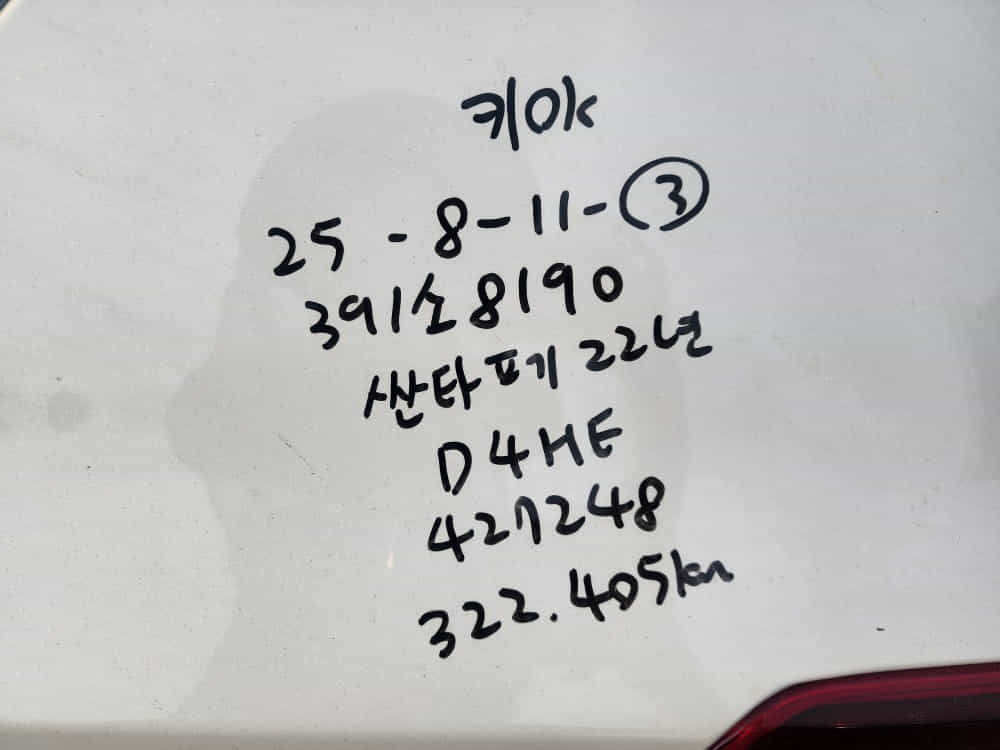 키OK
25-8-11-③
391소8190
싼타페기22년
D4HE
427248
322.405km